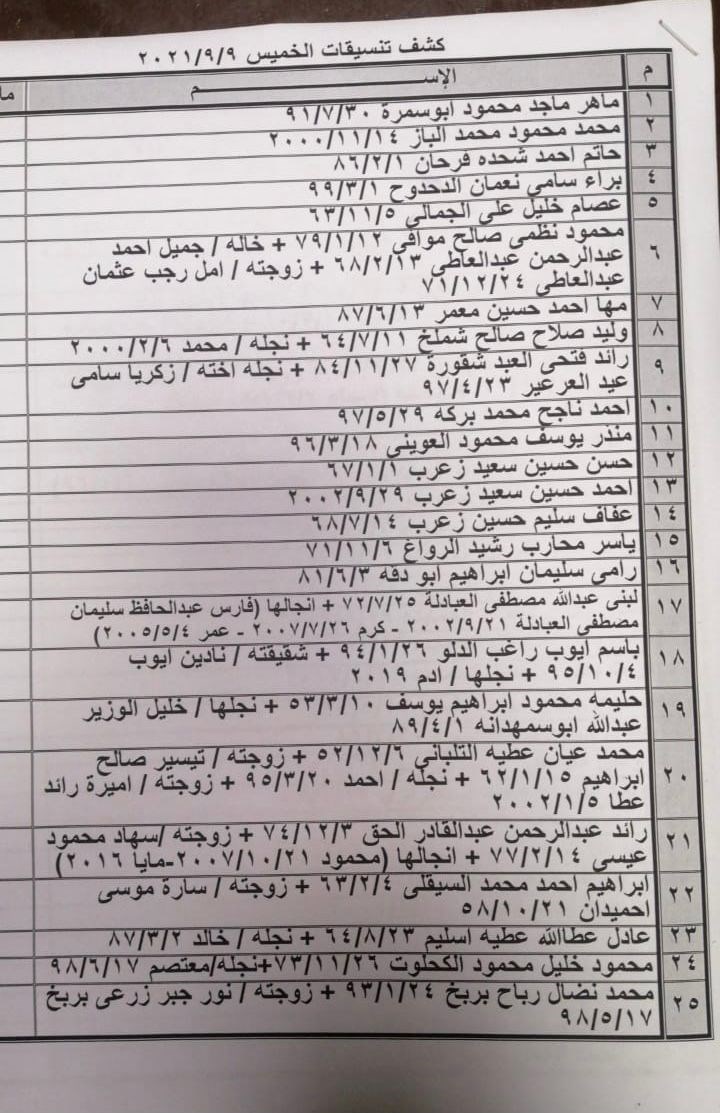 كشف تنسيقات الخميس ٢٠٢١/٩/٩
م الإســــــــم ما
١ ماهر ماجد محمود ابوسمرة ٩١/٧/٣٠
٢ محمد محمود محمد الباز ٢٠٠٠/١١/١٤
٣ حاتم احمد شحده فرحان ٨٦/٢/١
٤ براء سامي نعمان الدحدوح ٩٩/٣/١
٥ عصام خليل علي الجمالي ٦٣/١١/٥
٦ محمود نظمي صالح موافي ٧٩/١/١٢ + خاله / جميل احمد
عبدالرحمن عبدالعاطي ٦٨/٢/١٣ + زوجته / امل رجب عثمان
عبدالعاطي ٧١/١٢/٢٤
٧ مها احمد حسين معمر ٨٧/٦/١٣
٨ وليد صلاح صالح شملخ ٦٤/٧/١١ + نجله / محمد ٢٠٠٠/٢/٦
٩ رائد فتحي العبد شقورة ٨٤/١١/٢٧ + نجله اخته / زكريا سامي
عيد العرعير ٩٧/٤/٢٣
١٠ احمد ناجح محمد بركه ٩٧/٥/٢٩
١١ منذر يوسف محمود العويني ٩٦/٣/١٨
١٢ حسن حسين سعيد زعرب ٦٧/١/١
١٣ احمد حسين سعيد زعرب ٢٠٠٢/٩/٢٩
١٤ عفاف سليم حسين زعرب ٦٨/٧/١٤
١٥ ياسر محارب رشيد الرواغ ٧١/١١/٦
١٦ رامي سليمان ابراهيم ابو دقه ٨١/٦/٣
١٧ لبنى عبدالله مصطفى العبادلة ٧٢/٧/٢٥ + انجالها (فارس عبدالحافظ سليمان
مصطفى العبادلة ٢٠٠٢/٩/٢١ - كرم ٢٠٠٧/٧/٢٦ - عمر ٢٠٠٥/٥/٤)
١٨ باسم ايوب راغب الدلو ٩٤/١/٢٦ + شقيقته / نادين ايوب
٩٥/١٠/٤ + نجلها / ادم ٢٠١٩
١٩ حليمه محمود ابراهيم يوسف ٥٣/٣/١٠ + نجلها / خليل الوزير
عبدالله ابوسمهدانه ٨٩/٤/١
٢٠ محمد عيان عطيه التلباني ٥٢/١٢/٦ + زوجته / تيسير صالح
ابراهيم ٦٢/١/١٥ + نجله / احمد ٩٥/٣/٢٠ + زوجته / اميرة رائد
عطا ٢٠٠٢/١/٥
٢١ رائد عبدالرحمن عبدالقادر الحق ٧٤/١٢/٣ + زوجته /سهاد محمود
عيسى ٧٧/٢/١٤ + انجالها (محمود ٢٠٠٧/١٠/٢١-مايا ٢٠١٦)
٢٢ ابراهيم احمد محمد السيقلي ٦٣/٢/٤ + زوجته / سارة موسى
احميدان ٥٨/١٠/٢١
٢٣ عادل عطاالله عطيه اسليم ٦٤/٨/٢٣ + نجله / خالد ٨٧/٣/٢
٢٤ محمود خليل محمود الكحلوت ٧٣/١١/٢٦+نجله/معتصم ٩٨/٦/١٧
٢٥ محمد نضال رباح بربخ ٩٣/١/٢٤ + زوجته / نور جبر زرعي بربخ
٩٨/٥/١٧